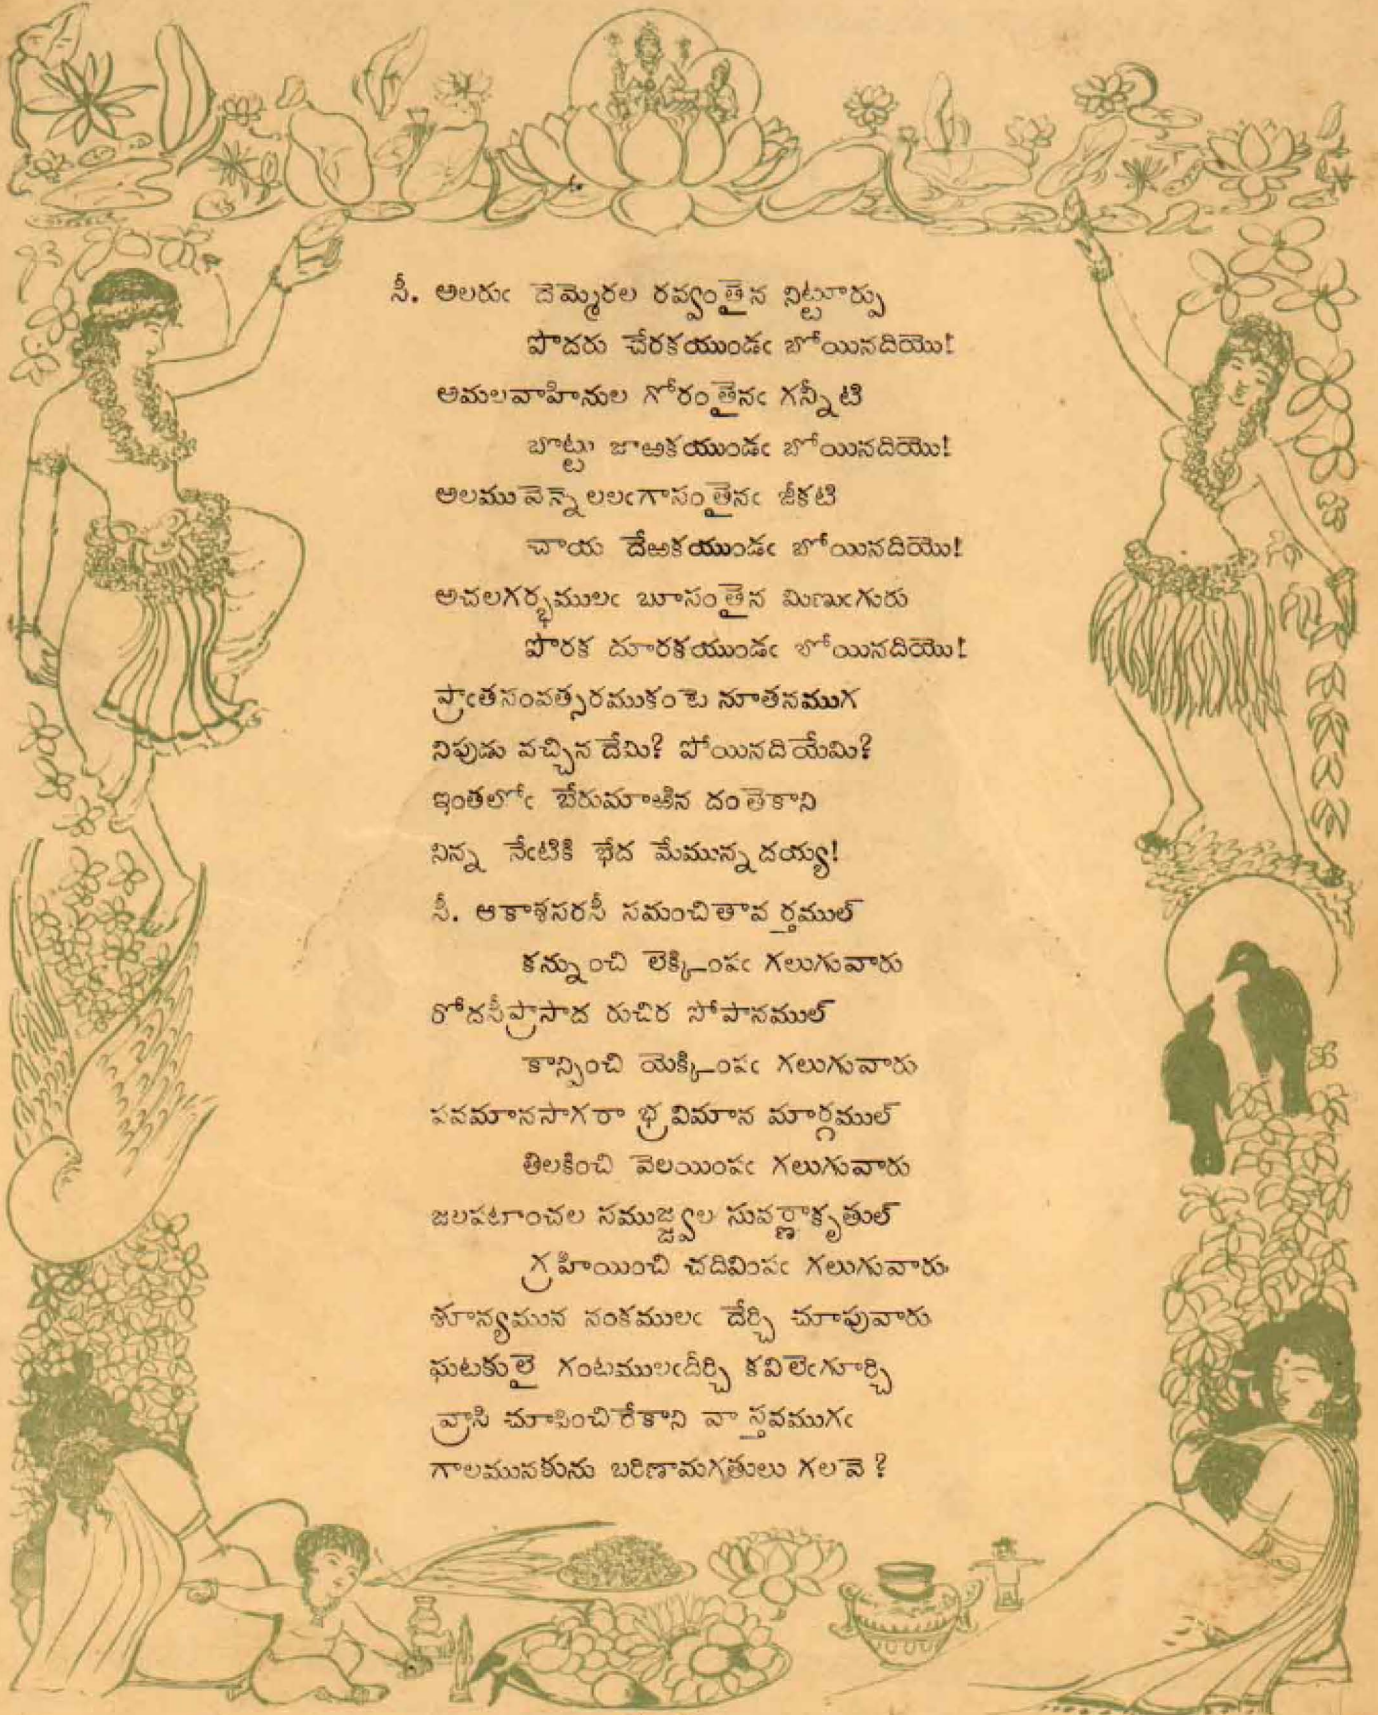 సీ. అలరుఁ దెమ్మెరల రవ్వంతైన నిట్టూర్పు
పొదరు చేరకయుండఁ బోయినదియొ!
అమలవాహినుల గోరంతైనఁ గన్నీటి
బొట్టు జాఱకయుండఁ బోయినదియొ!
అలము వెన్నెలలఁగాసంతైనఁ జీకటి
చాయ దేఱకయుండఁ బోయినదియొ!
అచలగర్భములఁ బూసంతైన మిణుఁగురు
పొరక దూరకయుండఁ బోయినదియొ!
ప్రాఁతసంవత్సరముకంటె నూతనముగ
నిపుడు వచ్చిన దేమి? పోయినదియేమి?
ఇంతలోఁ బేరుమాఱిన దంతెకాని
నిన్న నేఁటికి భేద మేమున్న దయ్య!
సీ. ఆకాశసరసీ సమంచితావర్తముల్
కన్నుంచి లెక్కింపఁ గలుగువారు
రోదసీప్రాసాద రుచిర సోపానముల్
కాన్పించి యెక్కింపఁ గలుగువారు
పవమానసాగరాభ్రవిమాన మార్గముల్
తిలకించి వెలయింపఁ గలుగువారు
జలపటాంచల సముజ్జ్వల సువర్ణాకృతుల్
గ్రహియించి చదివింపఁ గలుగువారు
శూన్యమున నంకములఁ దేర్చి చూపువారు
ఘటకులై గంటములఁదీర్చి కవిలెఁగూర్చి
వ్రాసి చూపించిరేకాని వాస్తవముగఁ
గాలమునకును బరిణామగతులు గలవె?